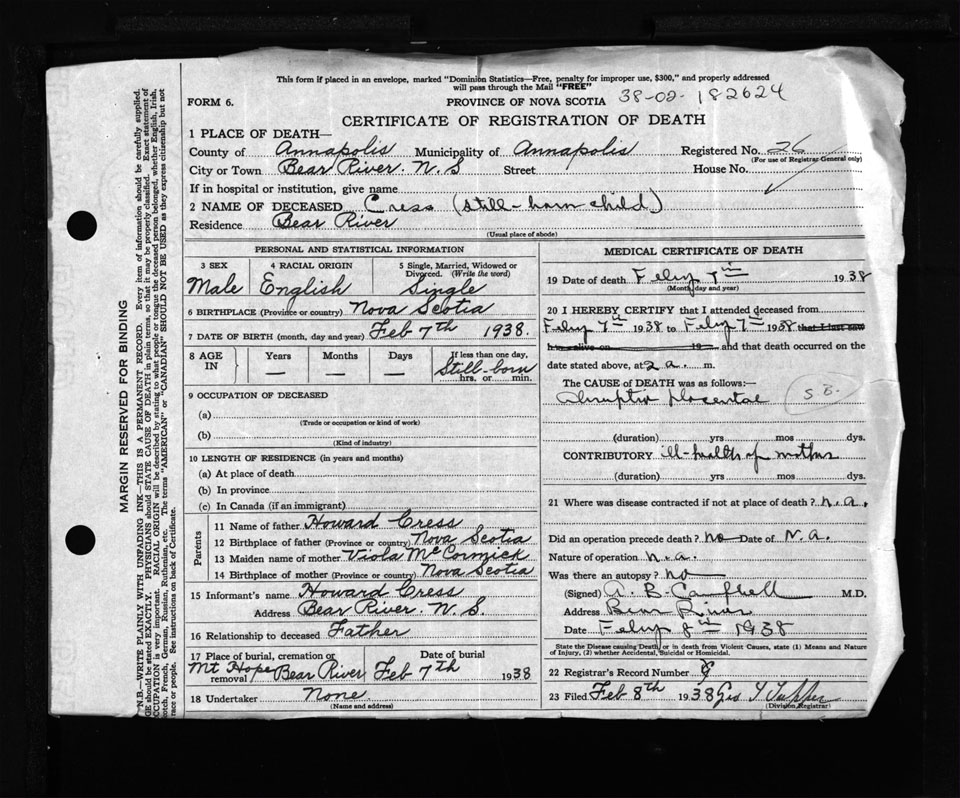 This form if placed in an envelope, marked "Dominion Statistics—Free, penalty for improper use, $300," and properly addressed
will pass through the Mail "FREE"
FORM 6. PROVINCE OF NOVA SCOTIA 38-02- 182624
CERTIFICATE OF REGISTRATION OF DEATH
1 PLACE OF DEATH—
County of Annapolis Municipality of Annapolis Registered No. 26
(For use of Registrar General only)
City or Town Bear River. N.S Street House No.
If in hospital or institution, give name
2 NAME OF DECEASED Cress (still-born child)
Residence Bear River
(Usual place of abode)
PERSONAL AND STATISTICAL INFORMATION
3 SEX Male
4 RACIAL ORIGIN English
5 Single, Married, Widowed or Divorced. (Write the word) Single
6 BIRTHPLACE (Province or country) Nova Scotia
7 DATE OF BIRTH (month, day and year) Feb 7th 1938.
8 AGE IN Years — Months — Days — If less than one day, Still-born hrs. or min.
9 OCCUPATION OF DECEASED
(a)
(Trade or occupation or kind of work)
(b)
(Kind of industry)
10 LENGTH OF RESIDENCE (in years and months)
(a) At place of death
(b) In province
(c) In Canada (if an immigrant)
Parents
11 Name of father Howard Cress
12 Birthplace of father (Province or country) Nova Scotia
13 Maiden name of mother Viola McCormick
14 Birthplace of mother (Province or country) Nova Scotia
15 Informant's name Howard Cress
Address Bear River. N.S.
16 Relationship to deceased Father
17 Place of burial, cremation or removal Mt Hope Bear River Date of burial Feb 7th 1938
18 Undertaker None
(Name and address)
MEDICAL CERTIFICATE OF DEATH
19 Date of death Feby 7th 1938
(Month, day and year)
20 I HEREBY CERTIFY that I attended deceased from
Feby 7th 1938 to Feby 7th 1938 that I last saw
h alive on 19 and that death occurred on the
date stated above, at 2 a. m.
The CAUSE OF DEATH was as follows:—
Placentae S.B.
(duration) yrs mos dys.
CONTRIBUTORY ill-health of mother
(duration) yrs mos dys.
21 Where was disease contracted if not at place of death? n.a.
Did an operation precede death? no Date of N.a.
Nature of operation n.a.
Was there an autopsy? no
(Signed) A. B. Campbell M.D.
Address Bear River
Date Feby 8th 1938
State the Disease causing Death, or in death from Violent Causes, state (1) Means and Nature
of Injury, (2) whether Accidental, Suicidal or Homicidal.
22 Registrar's Record Number
23 Filed Feb 8th 1938 Tupper
(Division Registrar)
MARGIN RESERVED FOR BINDING
"N.B.—WRITE PLAINLY WITH UNFADING INK—THIS IS A PERMANENT RECORD. Every item of information should be carefully supplied.
AGE should be stated EXACTLY. PHYSICIANS should STATE CAUSE OF DEATH in plain terms, so that it may be properly classified. Exact statement of
OCCUPATION is very important. RACIAL ORIGIN will be described by stating to what people or tongue the deceased person belonged, whether English, Irish,
Scotch, French, German, Russian, Ruthenian, etc. The terms "AMERICAN" or "CANADIAN" SHOULD NOT BE USED as they express citizenship but not
race or people. See instructions on back of Certificate.